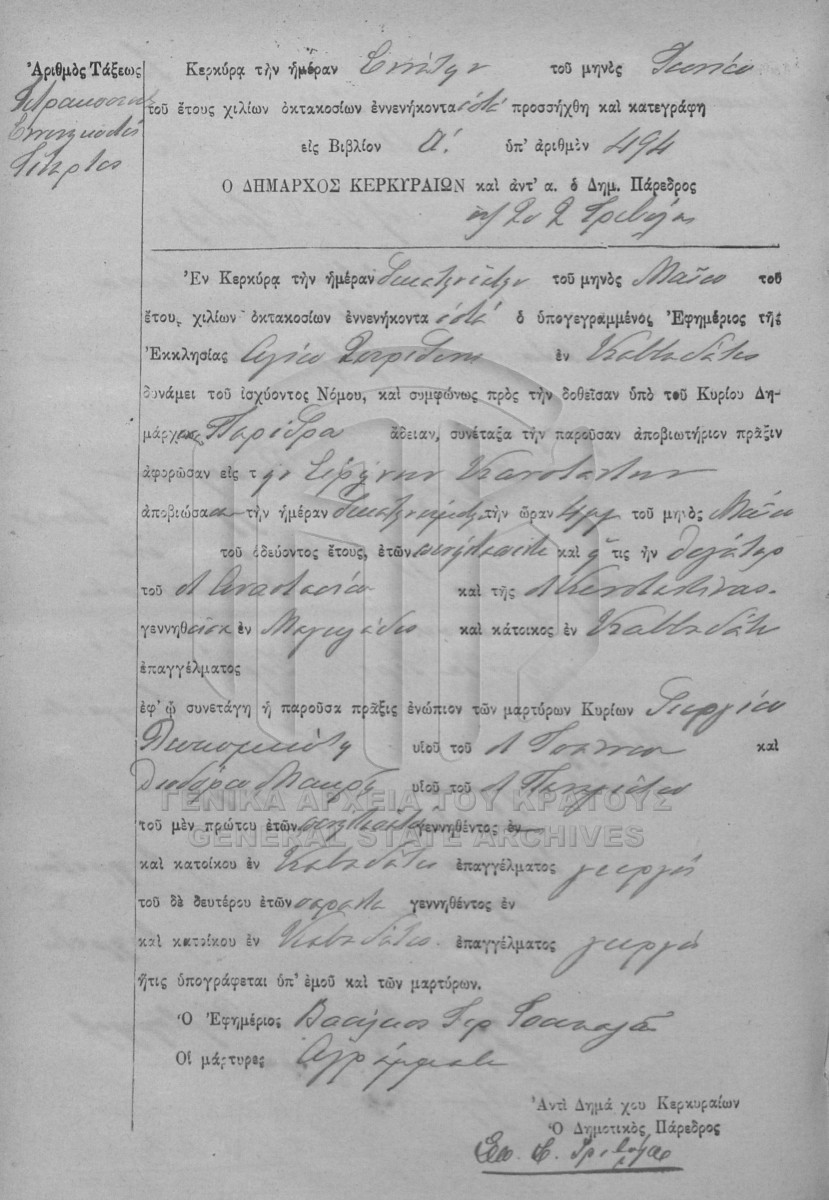 Ἀριθμὸς Τάξεως
Τετρακόσια
Ἐννενηκοστὸς
Τέταρτος
Κερκύρᾳ τὴν ἡμέραν Ἐννάτην τοῦ μηνὸς Ἰουνίου
τοῦ ἔτους χιλίων ὀκτακοσίων ἐννενήκοντα ἑπτά προσήχθη καὶ κατεγράφη
εἰς Βιβλίον Α΄. ὑπ' ἀριθμὸν 494
Ο ΔΗΜΑΡΧΟΣ ΚΕΡΚΥΡΑΙΩΝ καὶ ἀντ' α. ὁ Δημ. Πάρεδρος
Ἐν Κερκύρᾳ τὴν ἡμέραν τοῦ μηνὸς Μαΐου τοῦ
ἔτους χιλίων ὀκτακοσίων ἐννενήκοντα ἑπτά ὁ ὑπογεγραμμένος Ἐφημέριος τῆς
Ἐκκλησίας Ἁγίου Σπυρίδωνος ἐν Καββαδάτες
δυνάμει τοῦ ἰσχύοντος Νόμου, καὶ συμφώνως πρὸς τὴν δοθεῖσαν ὑπὸ τοῦ Κυρίου Δη-
μάρχου Παρέδρου ἄδειαν, συνέταξα τὴν παροῦσαν ἀποβιωτήριον πρᾶξιν
ἀφορῶσαν εἰς τὴν Εἰρήνην
ἀποβιώσασα τὴν ἡμέραν τὴν ὥραν 4 μμ τοῦ μηνὸς Μαΐου
τοῦ ὁδεύοντος ἔτους, ἐτῶν καὶ ἥτις ἦν θυγάτηρ
τοῦ Ἀναστασίου καὶ τῆς Κωνσταντίνας.
γεννηθεῖσα ἐν Μαγουλάδες καὶ κάτοικος ἐν Καββαδάτες
ἐπαγγέλματος
ἐφ' ᾧ συνετάγη ἡ παροῦσα πρᾶξις ἐνώπιον τῶν μαρτύρων Κυρίων Γεωργίου
υἱοῦ τοῦ Ἰωάννου καὶ
Θεοδώρου Μακρῆ υἱοῦ τοῦ Παναγιώτου
ΓΕΝΙΚΑ ΑΡΧΕΙΑ ΤΟΥ ΚΡΑΤΟΥΣ
τοῦ μὲν πρώτου ἐτῶν γεννηθέντος ἐν
GENERAL STATE ARCHIVES
καὶ κατοίκου ἐν Καββαδάτες ἐπαγγέλματος γεωργοῦ
τοῦ δὲ δευτέρου ἐτῶν σαράντα γεννηθέντος ἐν
καὶ κατοίκου ἐν Καββαδάτες ἐπαγγέλματος γεωργοῦ
ἥτις ὑπογράφεται ὑπ' ἐμοῦ καὶ τῶν μαρτύρων.
Ὁ Ἐφημέριος Βασίλειος Ἱερ
Οἱ μάρτυρες Ἀγράμματοι
Ἀντὶ Δημάρχου Κερκυραίων
Ὁ Δημοτικὸς Πάρεδρος